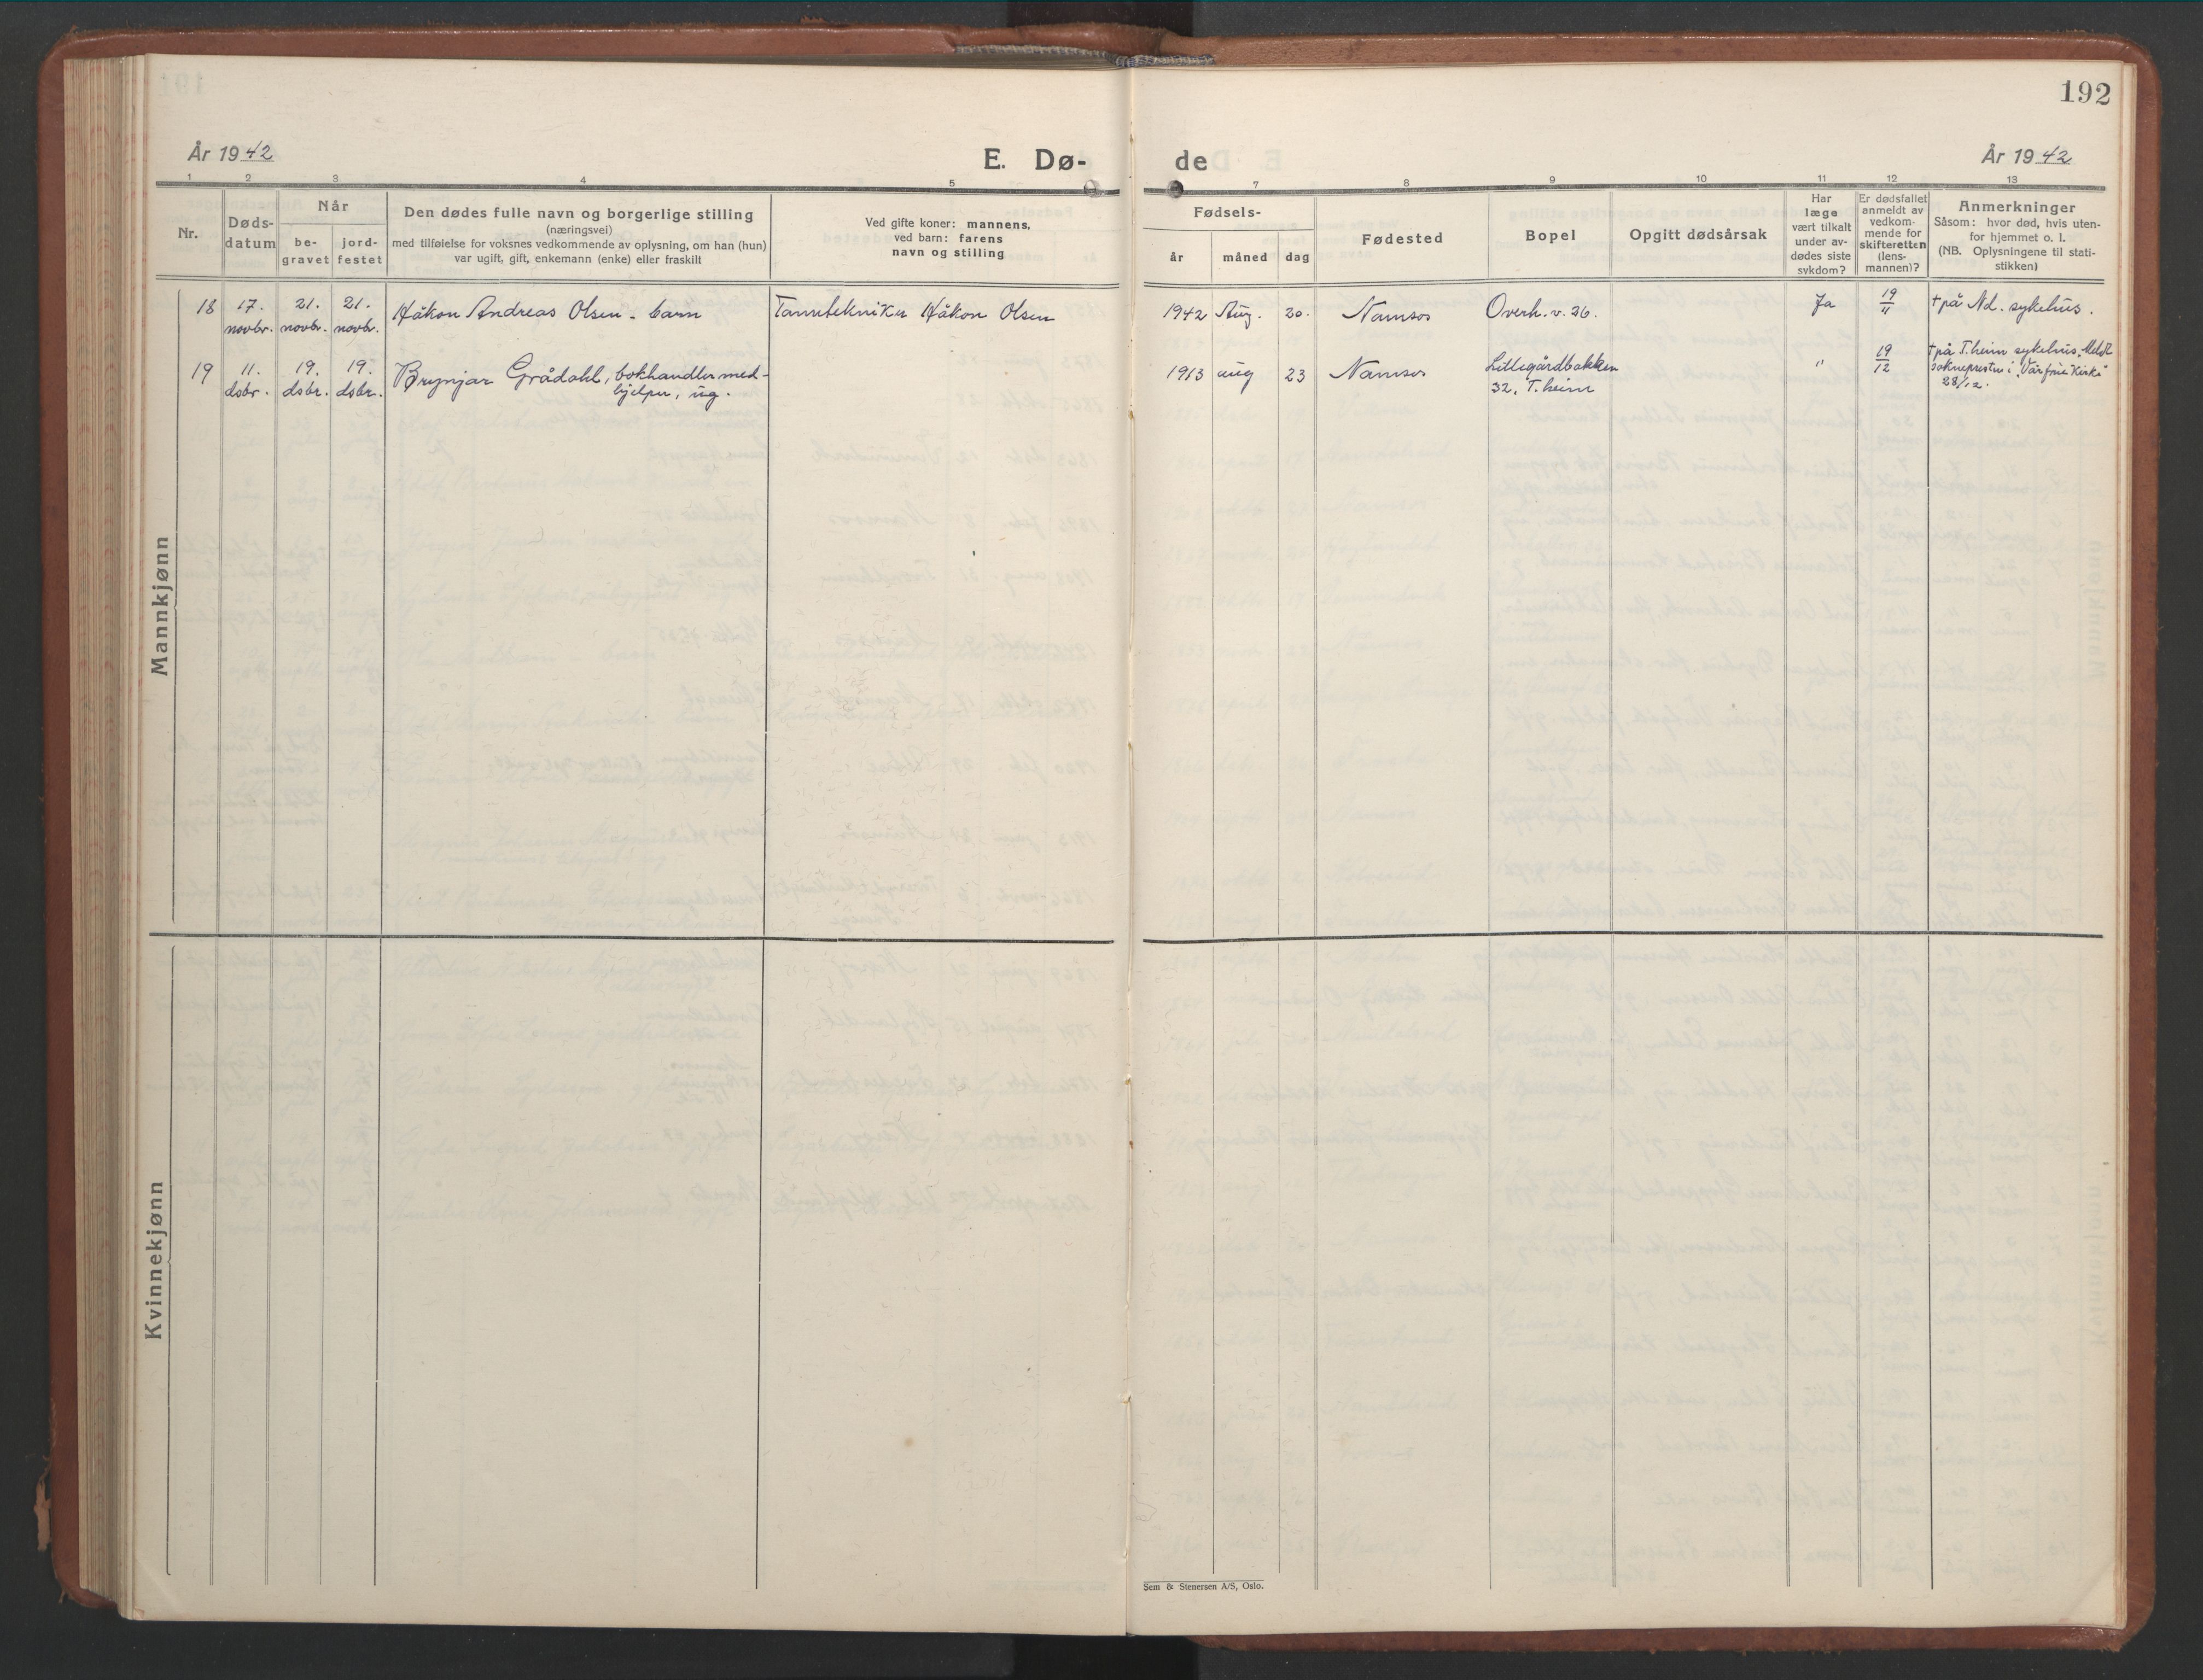 192
År 1942
E. Dø-
de
År 1942
1 2 3 4 5 7 8 9 10 11 12 13
Nr.
Døds-
datum
Når
be-
gravet
jord-
festet
Den dødes fulle navn og borgerlige stilling
(næringsvei)
med tilføielse for voksnes vedkommende av oplysning, om han (hun)
var ugift, gift, enkemann (enke) eller fraskilt
Ved gifte koner: mannens,
ved barn: farens
navn og stilling
Fødsels-
år måned dag
Fødested
Bopel
Opgitt dødsårsak
Har
læge
vært tilkalt
under av-
dødes siste
sykdom?
Er dødsfallet
anmeldt av
vedkom-
mende for
skifteretten
(lens-
mannen)?
Anmerkninger
Såsom: hvor død, hvis uten-
for hjemmet o. l.
(NB. Oplysningene til stati-
stikken)
Mannkjønn
18 17. 21. 21. Håkon Andreas Olsen - barn Tanntekniker Håkon Olsen 1942 Aug. 20. Namsos Overh.v. 26. Ja 19/11 † på Nd. sykehus.
novbr. novbr. novbr.
19 11. 19. 19. Brynjar Grådahl, bokhandlermed- 1913 aug 23 Namsos Lillegårdbakken " 19/12 † på T.heim sykehus. Meldt
dsbr. dsbr. dsbr. hjelper, ug. 32, T.heim sokneprestn i "Vår frue Kirke"
28/12.
Kvinnekjønn
Sem & Stenersen A/S, Oslo.